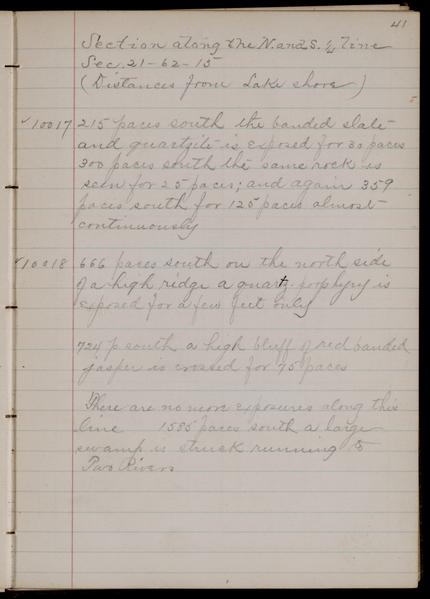 41
Section along the N. and S. ¼ line
Sec. 21-62-15
(Distances from Lake shore)
✓10017 215 paces south the banded slate
and quartzite is exposed for 30 paces
300 paces south the same rock is
seen for 25 paces; and again 359
paces south for 125 paces almost
continuously
✓10018 666 paces south on the north side
of a high ridge a quartz-porphyry is
exposed for a few feet only
724 p. south a high bluff of red banded
jasper is crossed for 75 paces
There are no more exposures along this
line 1585 paces south a large
swamp is struck running to
Two Rivers